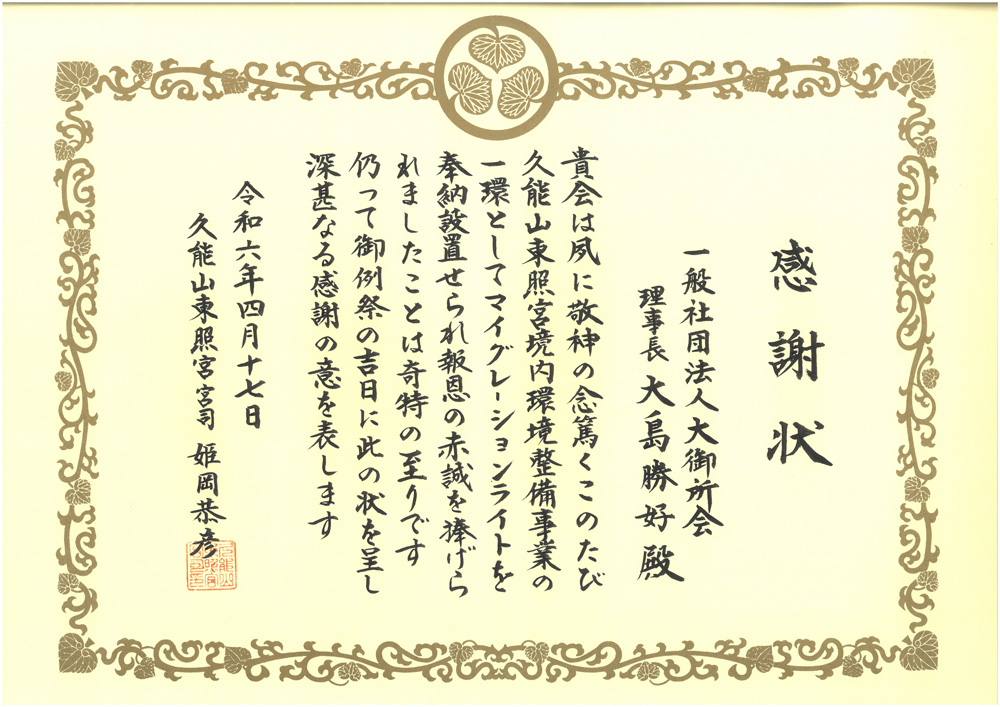 感謝状
一般社団法人大御所会
理事長 大島勝好 殿
貴会は夙に敬神の念篤くこのたび
久能山東照宮境内環境整備事業の
一環としてマイグレーションライトを
奉納設置せられ報恩の赤誠を捧げら
れましたことは奇特の至りです
仍って御例祭の吉日に此の状を呈し
深甚なる感謝の意を表します
令和六年四月十七日
久能山東照宮宮司 姫岡恭彦